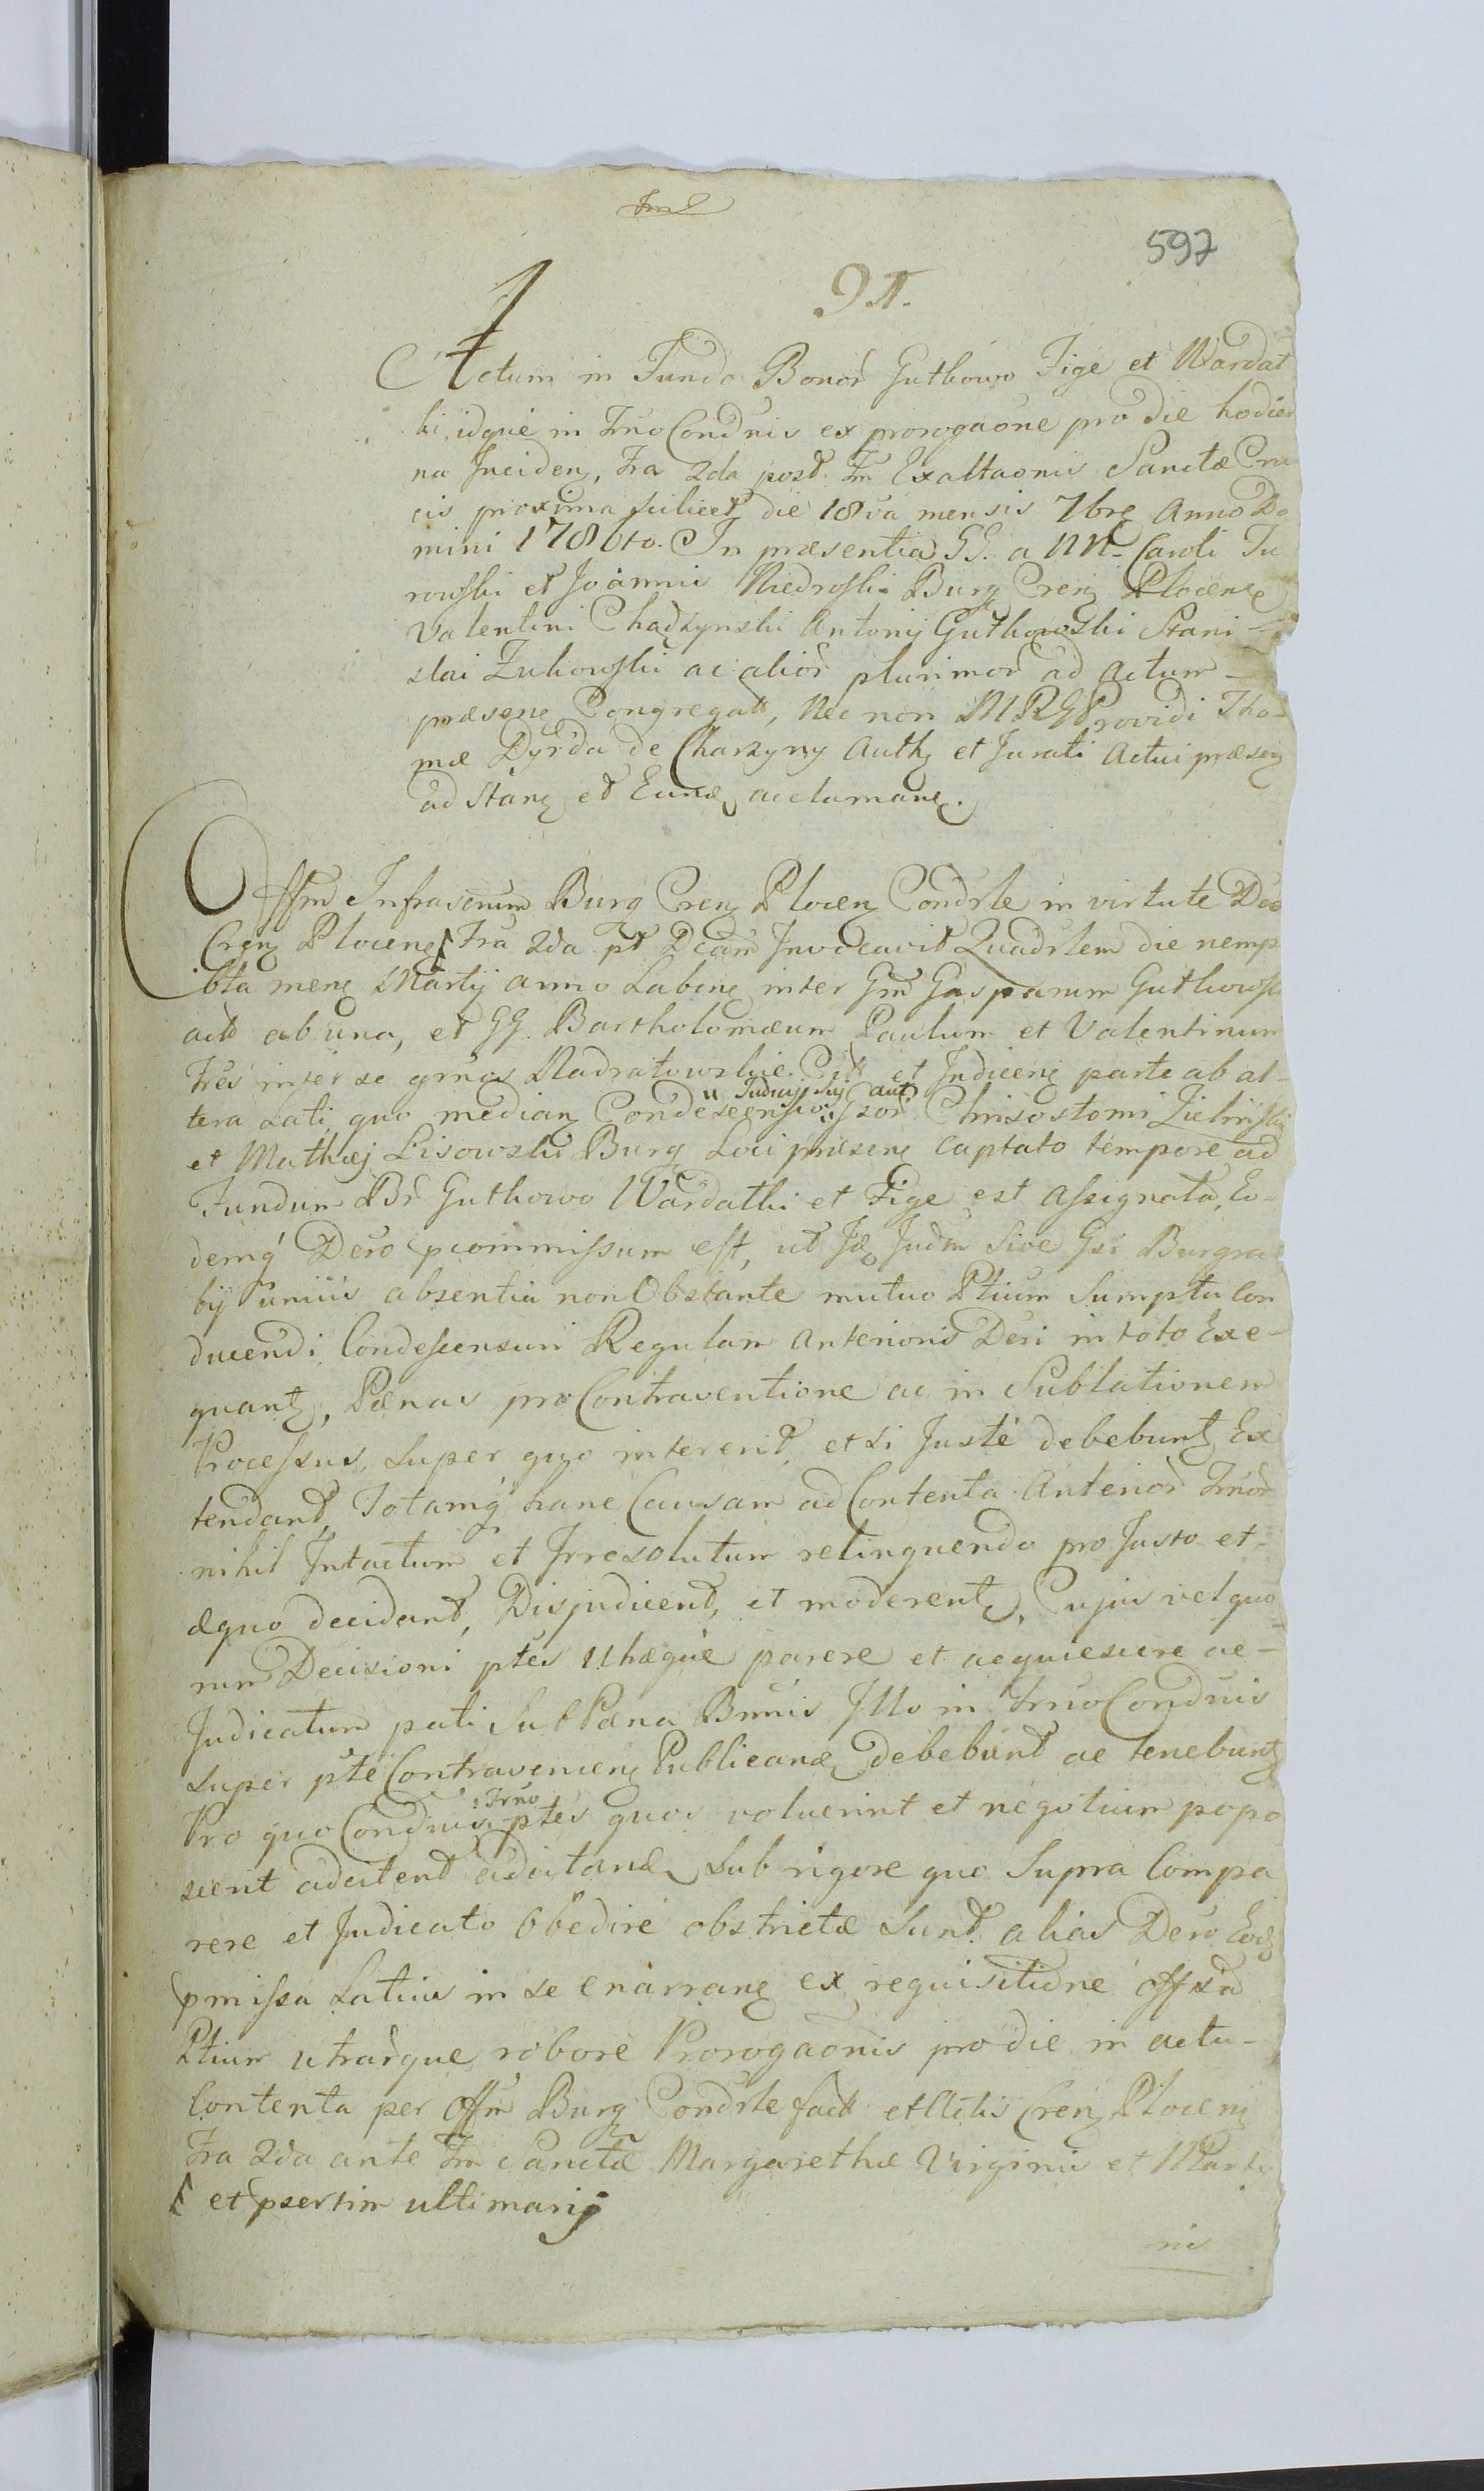 597
91.
Actum in Fundo Bonor Guthowo Fige et Wardat
ki, idque in Trno Condnis ex prorogaone pro die hodier
na Inciden, Fra 2da post Fm Exaltaonis Sanctæ Cru
cis proxima scilicet die 18va mensis 7bre Anno Do
mini 1786to. In præsentia GG. a NN. Caroli Tu
rowski et Joannis Niedroski Burg Cren Plocens
Valentini Chadzynski Antonij Guthowski Stani-
slai Zukowski ac alior plurimor ad actum
præsens Congregatt, Nec non MRG Providi Tho-
mæ Dyrda de Charzyny Auth et Jurati Actui præsen
adstan et Eund acclaman.
Offm Infrascrum Burg Cren Plocen Condrle in virtute Deo
Cren Plocens Fra 2da pt Dcam Invocavit Quadrlem die nemp
6ta mens Martij anno Labens inter Gm Gasparum Guthowski
actt ab una, et GG. Bartholomæum Paulum et Valentinum
Fres inter se grnos Nadratowskie Citt et Indicens parte ab al-
tera Lati, quo median Condescensio Gsor Chrisostomi Zielinski
" Judicij sui aut
et Mathæj Lisowski Burg Loci præsens captato tempore ad
Fundum Br Guthowo Wardathi et Fige est assignata, Eo-
demq Dero pcommissum est, ut Id Judm sive Gsi Burgra
bij unius absentia non Obstante mutuo Ptium Sumptu Con
ducendi Condescensuri Regulam anterioris Deri in toto Exe-
quant, Pænas pro Contraventione ac in Sublationem
Processus super quo intererit, et si Juste debebunt Ex
tendant, Totamq hanc Causam ad Contenta Anterior Trnor
nihil Intactum et Irresolutum relinquendo pro Justo et
æquo decidant, Disjudicent, et moderent, Cujus vel quo
rum Decisioni ptes Uthæque parere et acquiescere ac-
Judicatum pati sub Pæna Bnnis Illo in Trno Condnis
super pte Contraveniens Publicand debebunt ac tenebunt
Pro quo Condnis ptes quos voluerint et negotium popo
Trno
scerit adcitent adcitand sub rigore quo Supra Compa
rere et Judicato Obedire obstrictæ sunt alias Dero Eod
pmissa Latius in se enarrans ex requisitione Offsa
Ptium utrarque robore Prorogaonis pro die in actu-
Contenta per Offm Burg Condrle fact et Actis Cren Plocens
Fra 2da ante Fm Sanctæ Margarethæ Virginis et Marty
et psertim ultimarij
ris